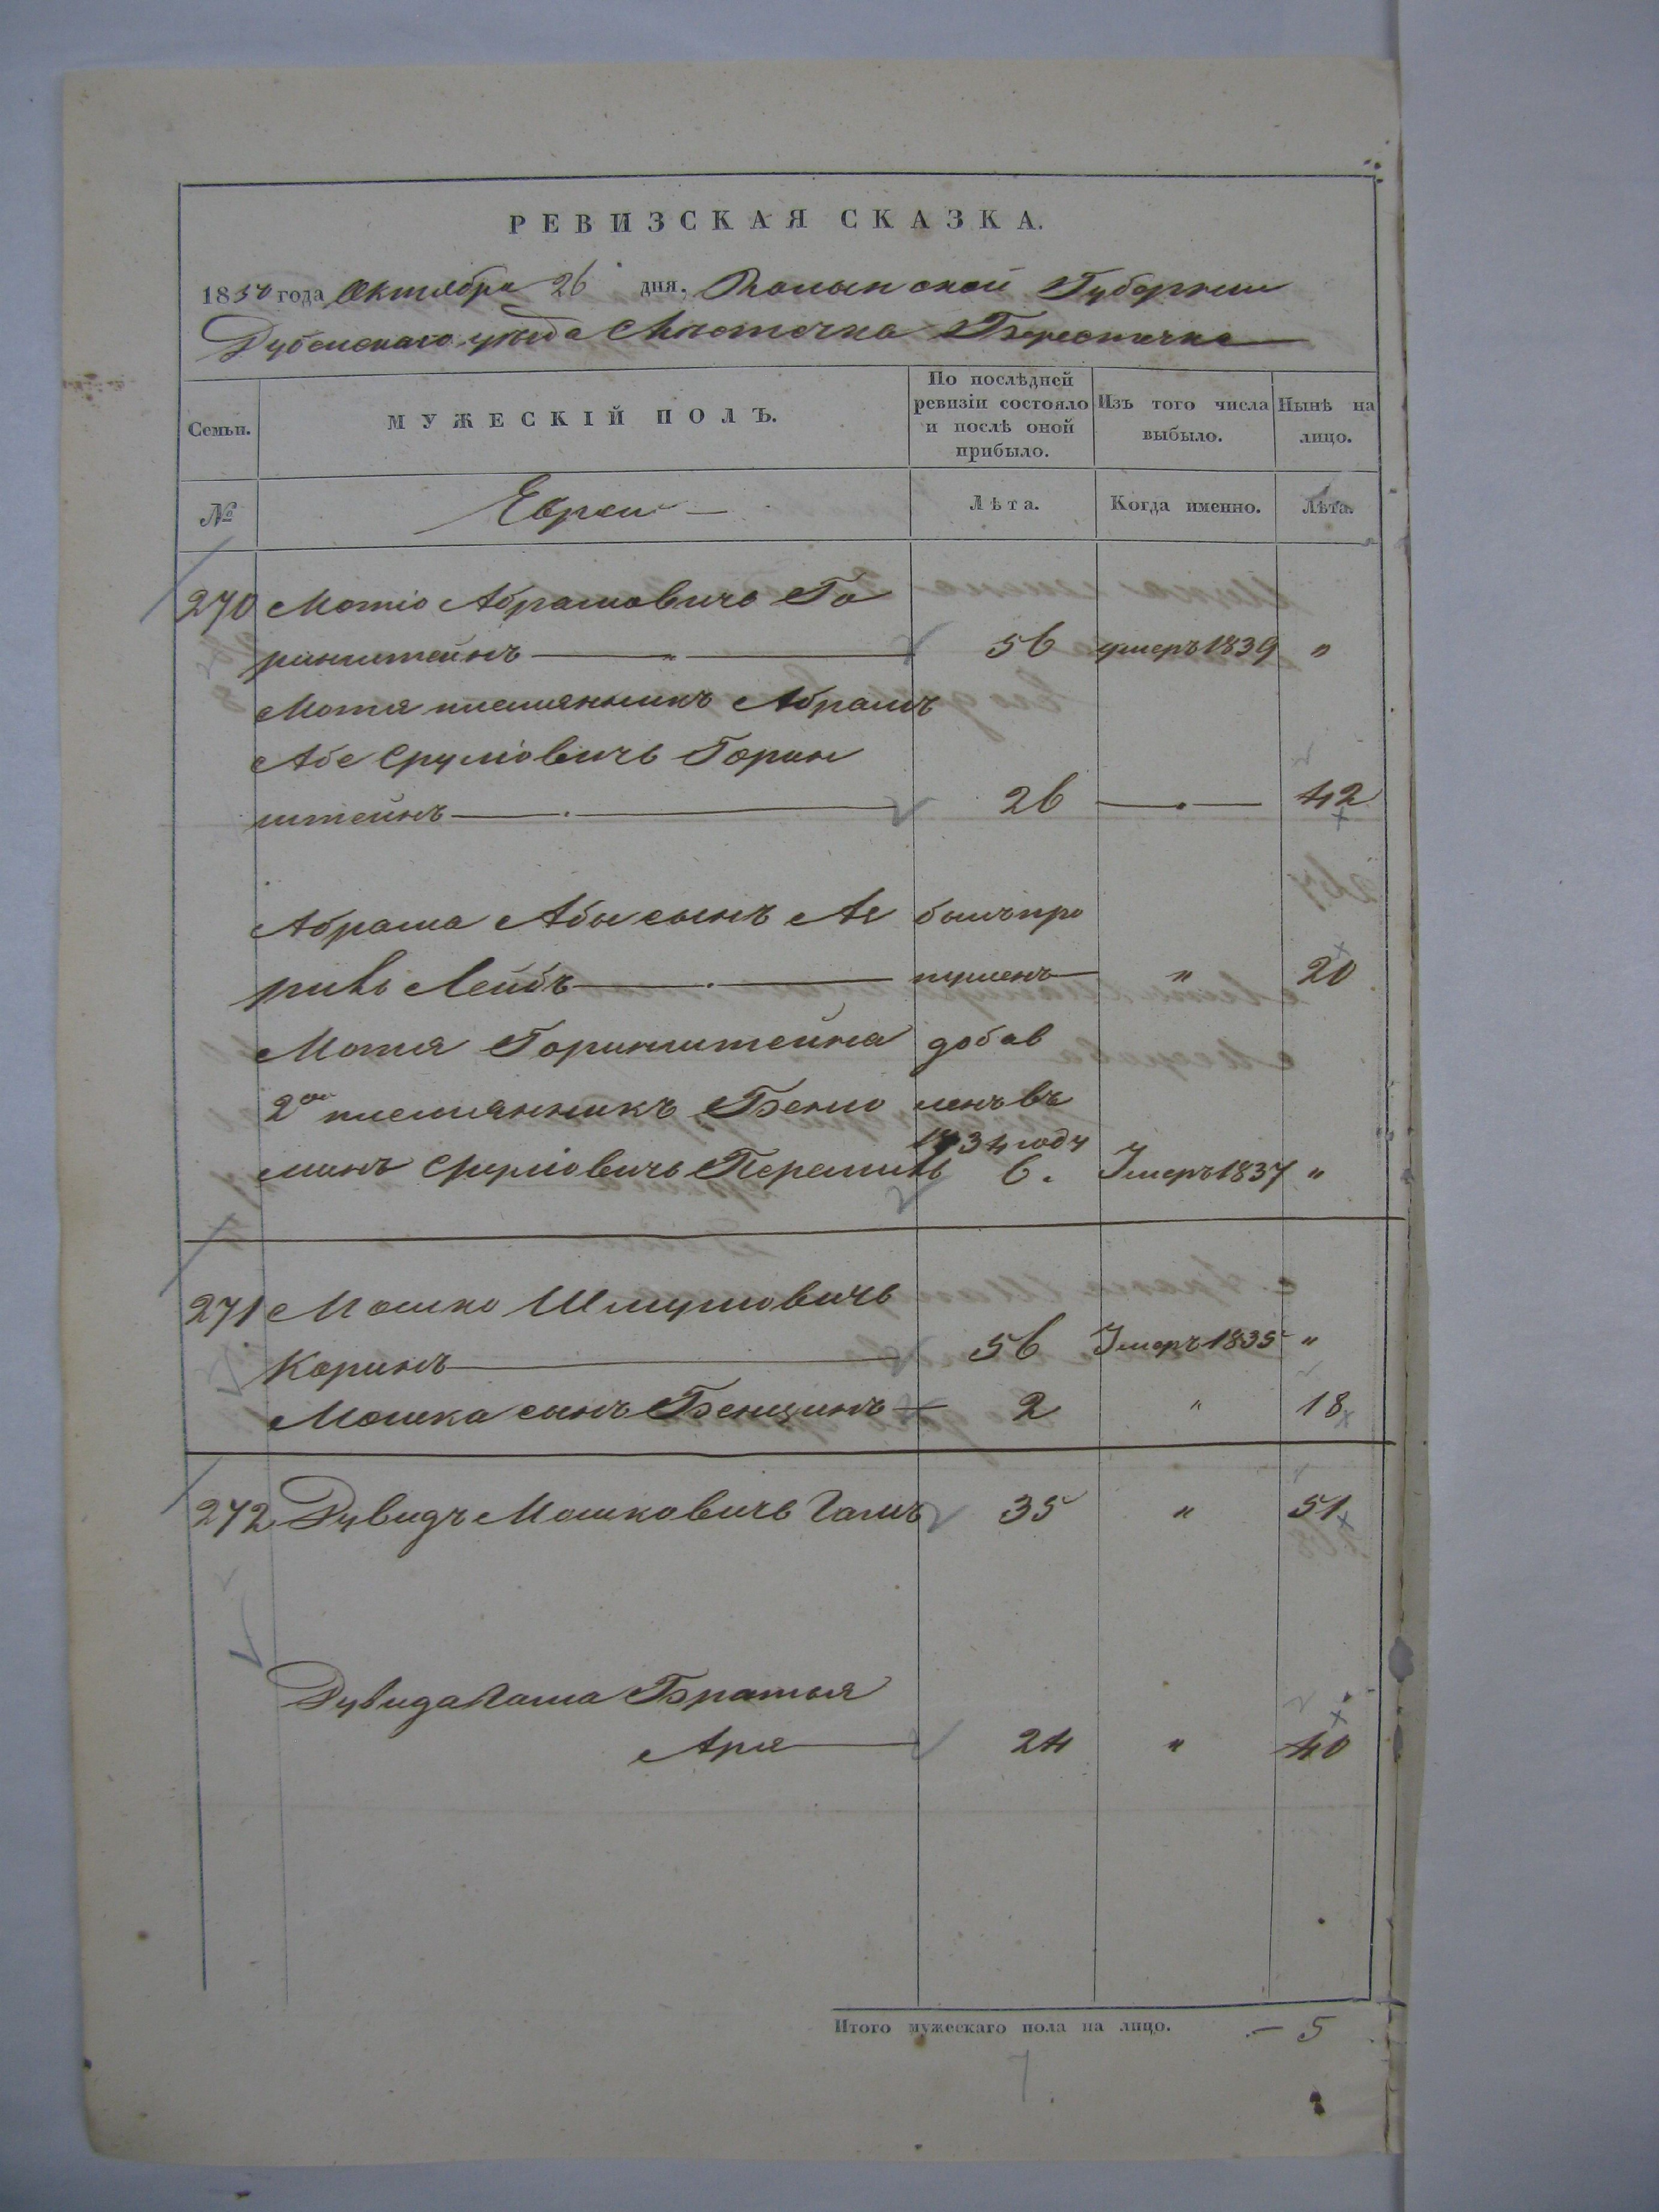 РЕВИЗСКАЯ СКАЗКА.
1850 года Октября 26 дня, Волынской Губернии
Дубенскаго уѣзда Мѣстечка Берестечка
Семьи.
МУЖЕСКІЙ ПОЛЪ.
По послѣдней ревизіи состояло и послѣ оной прибыло.
Изъ того числа выбыло.
Нынѣ на лицо.
№
Евреи
Лѣта.
Когда именно.
Лѣта.
270 Мотіо Абрамовичъ Го
ринштейнъ — 56 умеръ 1839 "
Мотя племянникъ Абрамъ
Абе Срулiовичъ Горин
штейнъ — 26 — 42
Абрама Абы сынъ Ле был про
Лейбъ — пущенъ — " 20
Мотя Горинштейна добав
2ой племянникъ Бенiо ленъ въ
1834 году
минъ Срулiовичъ 6. Умеръ 1837 "
271 Мошко Шмулiовичъ
Коринъ — 56 Умеръ 1835 "
Мошка сынъ Бенционъ — 2 " 18
272 Дувидъ Мошковичъ Гамъ 35 " 51
Дувида Гама Братья
Аріе — 24 " 40
Итого мужескаго пола на лицо. — 5
7